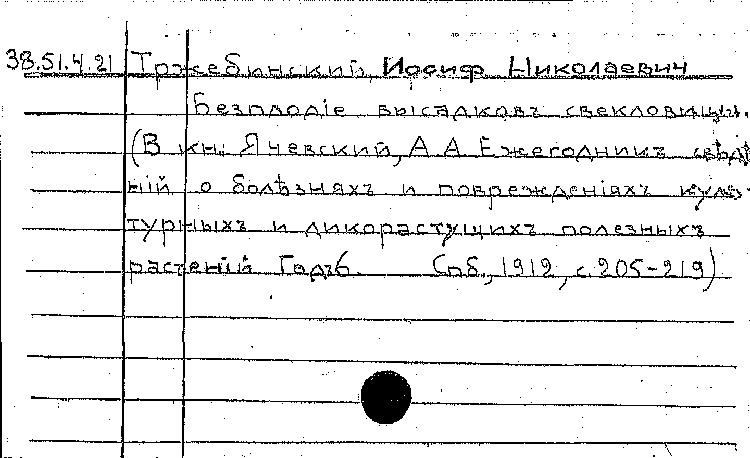 38.51.4.21 Тржебинский, Иосиф Николаевич
Безплодіе высадковъ свекловицы.
(В кн: Ячевский, А А Ежегодникъ свѣдѣ
ній о болѣзняхъ и поврежденіяхъ куль-
турныхъ и дикорастущихъ полезныхъ
растеній Годъ 6. Спб., 1912, с. 205-219)